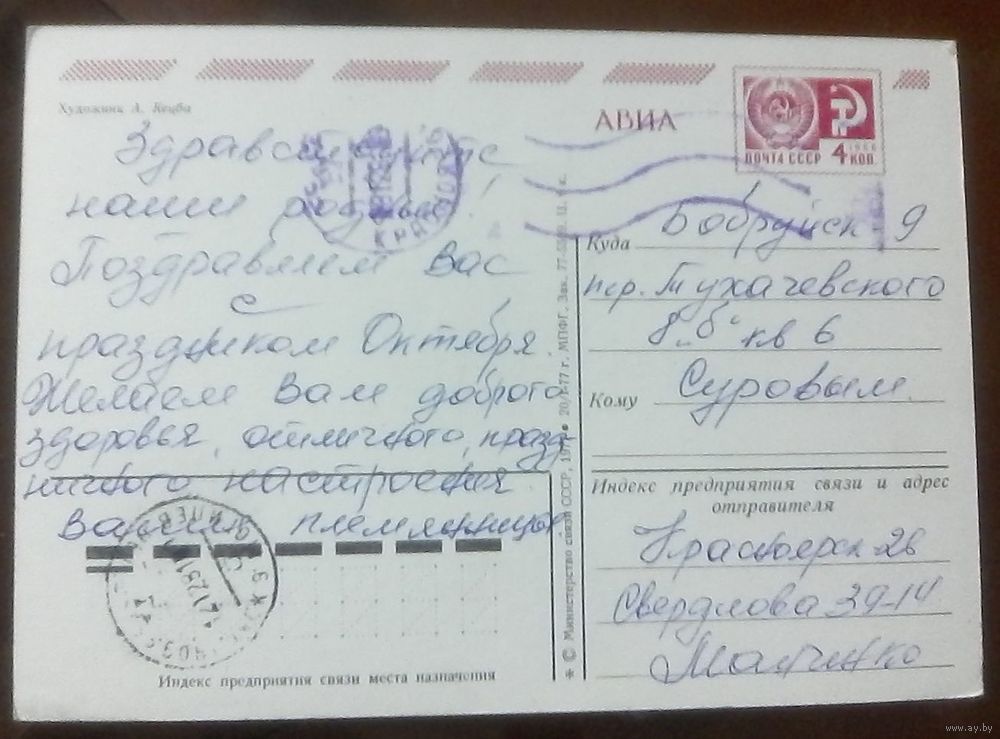 Художник А. Кецба
АВИА
ПОЧТА СССР
1966
4 КОП
Здравствуйте
наши родные!
Поздравляем Вас
с
праздником Октября.
Желаем Вам доброго
здоровья, отличного, празд-
ничного настроения
Ваши племянницы.
Куда Бобруйск 9
пер. Тухачевского
8 "б" кв 6
Кому Суровым.
Индекс предприятия связи и адрес
отправителя
Красноярск 26
Свердлова 39-14
© Министерство связи СССР
МПФГ. Зак. 77-
Индекс предприятия связи места назначения
www.ay.by